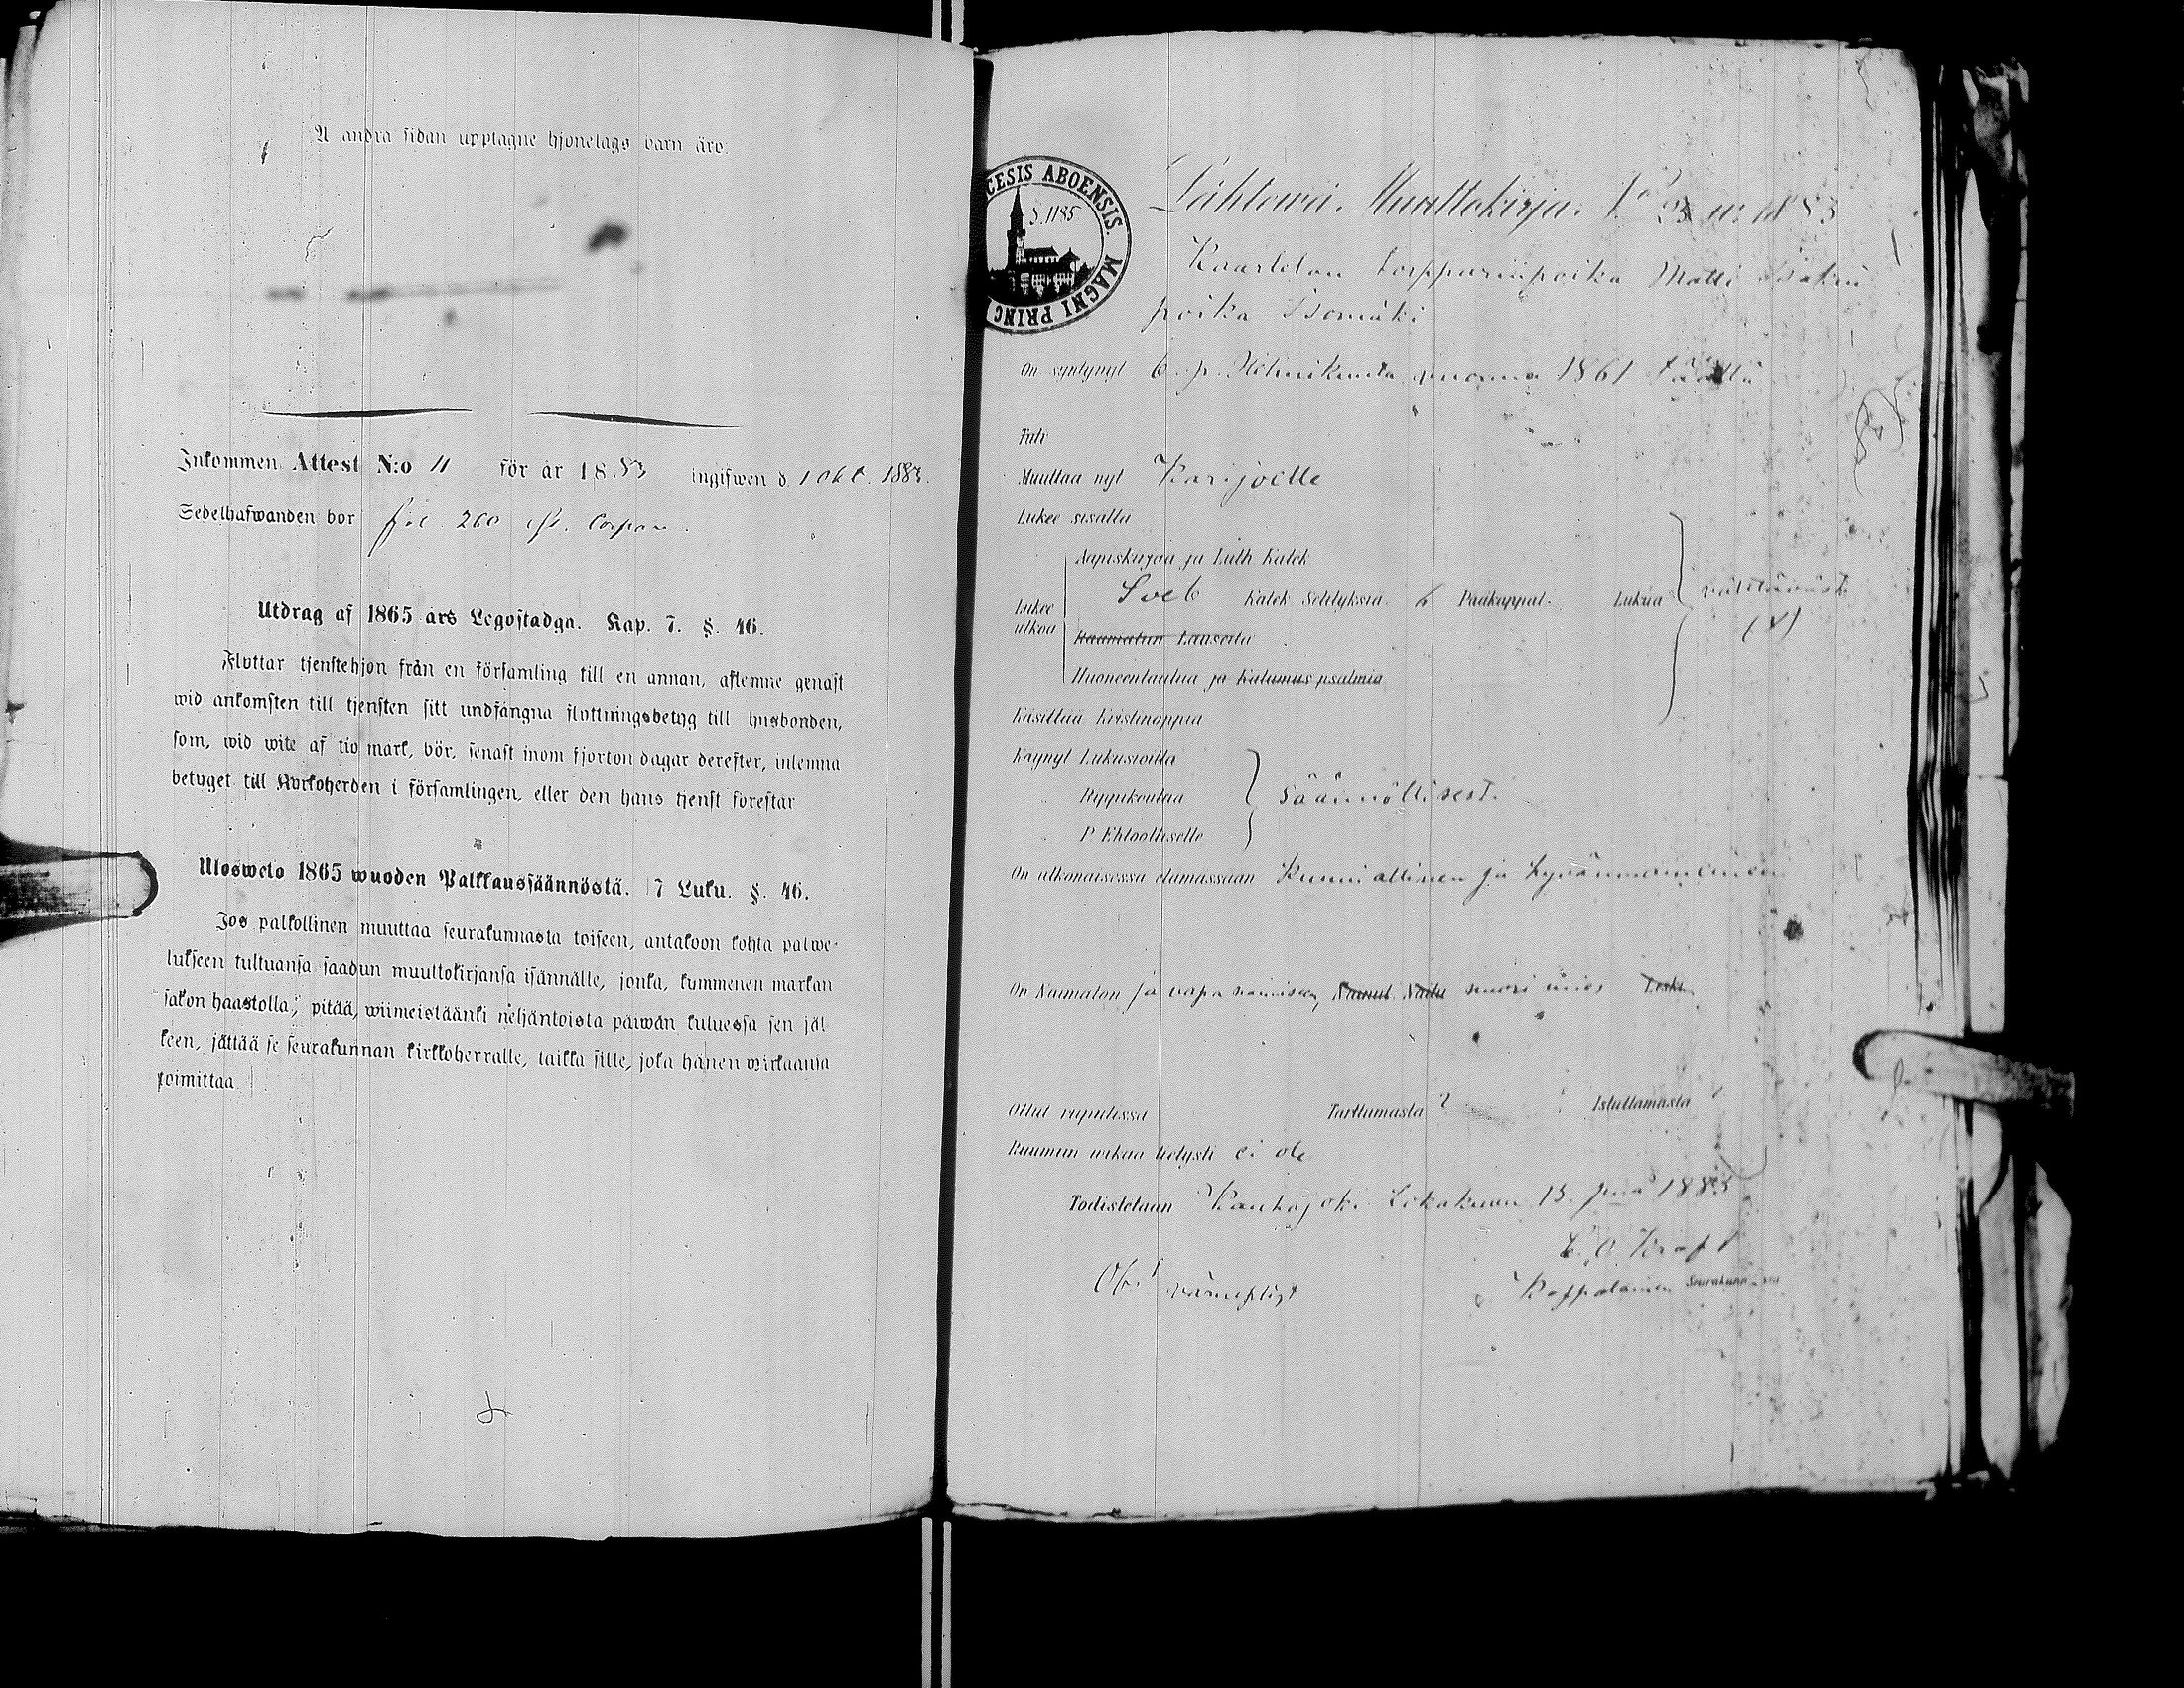 Å andra sidan upptagne hjonelags barn äro.
Inkommen Attest N:o 11 för år 1883 ingifwen d. 1 Okt. 1883.
Sedelhafwanden bor fol. 260
Utdrag af 1865 års Legostadga. Kap. 7. §. 46.
Flyttar tjenstehjon från en församling till en annan, aflemne genast
wid ankomsten till tjensten sitt undfångna flyttningsbetyg till husbonden,
som, wid wite af tio mark, bör, senast inom fjorton dagar derefter, inlemna
betyget till Kyrkoherden i församlingen, eller den hans tjenst förestår
Uloswelo 1865 wuoden Palkkaussäännöstä. 7 Luku. §. 46.
Jos palkollinen muuttaa seurakunnasta toiseen, antakoon kohta palwe-
lukseen tultuansa saadun muuttokirjansa isännälle, jonka, kymmenen markan
sakon haastolla, pitää, wiimeistäänki neljäntoista päiwän kuluessa sen jäl
keen, jättää se seurakunnan kirkkoherralle, taikka sille, joka hänen wirkaansa
toimittaa
CESIS ABOENSIS. MAGNI PRINC
S. 1185
Lähtewä. Muuttokirja. No 23 1883
torpparinpoika Matti Isakin
poika Isomäki
On syntynyt 6. p. Helmikuuta vuonna 1861 täällä
Tuli
Muuttaa nyt Karijoelle
Lukee sisältä
Aapiskirjaa ja Luth Katek
Lukee
ulkoa
Sveb Katek Selityksiä. 6 Pääkappal. Lukua välttäväst.
Raamatun Lauseita
Huoneentaulua ja Katumus psalmia
Käsittää Kristinoppia
Käynyt Lukusioilla
Rippikoulua säännöllisest.
P Ehtoolliselle
On ulkonaisessa elämässään Kunniallinen ja hyvänmaineinen
On Naimaton ja vapa naimiseen, nuori mies Leski
Ollut rupulissa Tarttumasta ? Istuttamasta ?
Ruumiin wikaa tietysti ei ole
Todistetaan Kauhajoki Lokakuun 15. pnä 1883
Obs! värnepligt
Kappalainen Seurakunnassa